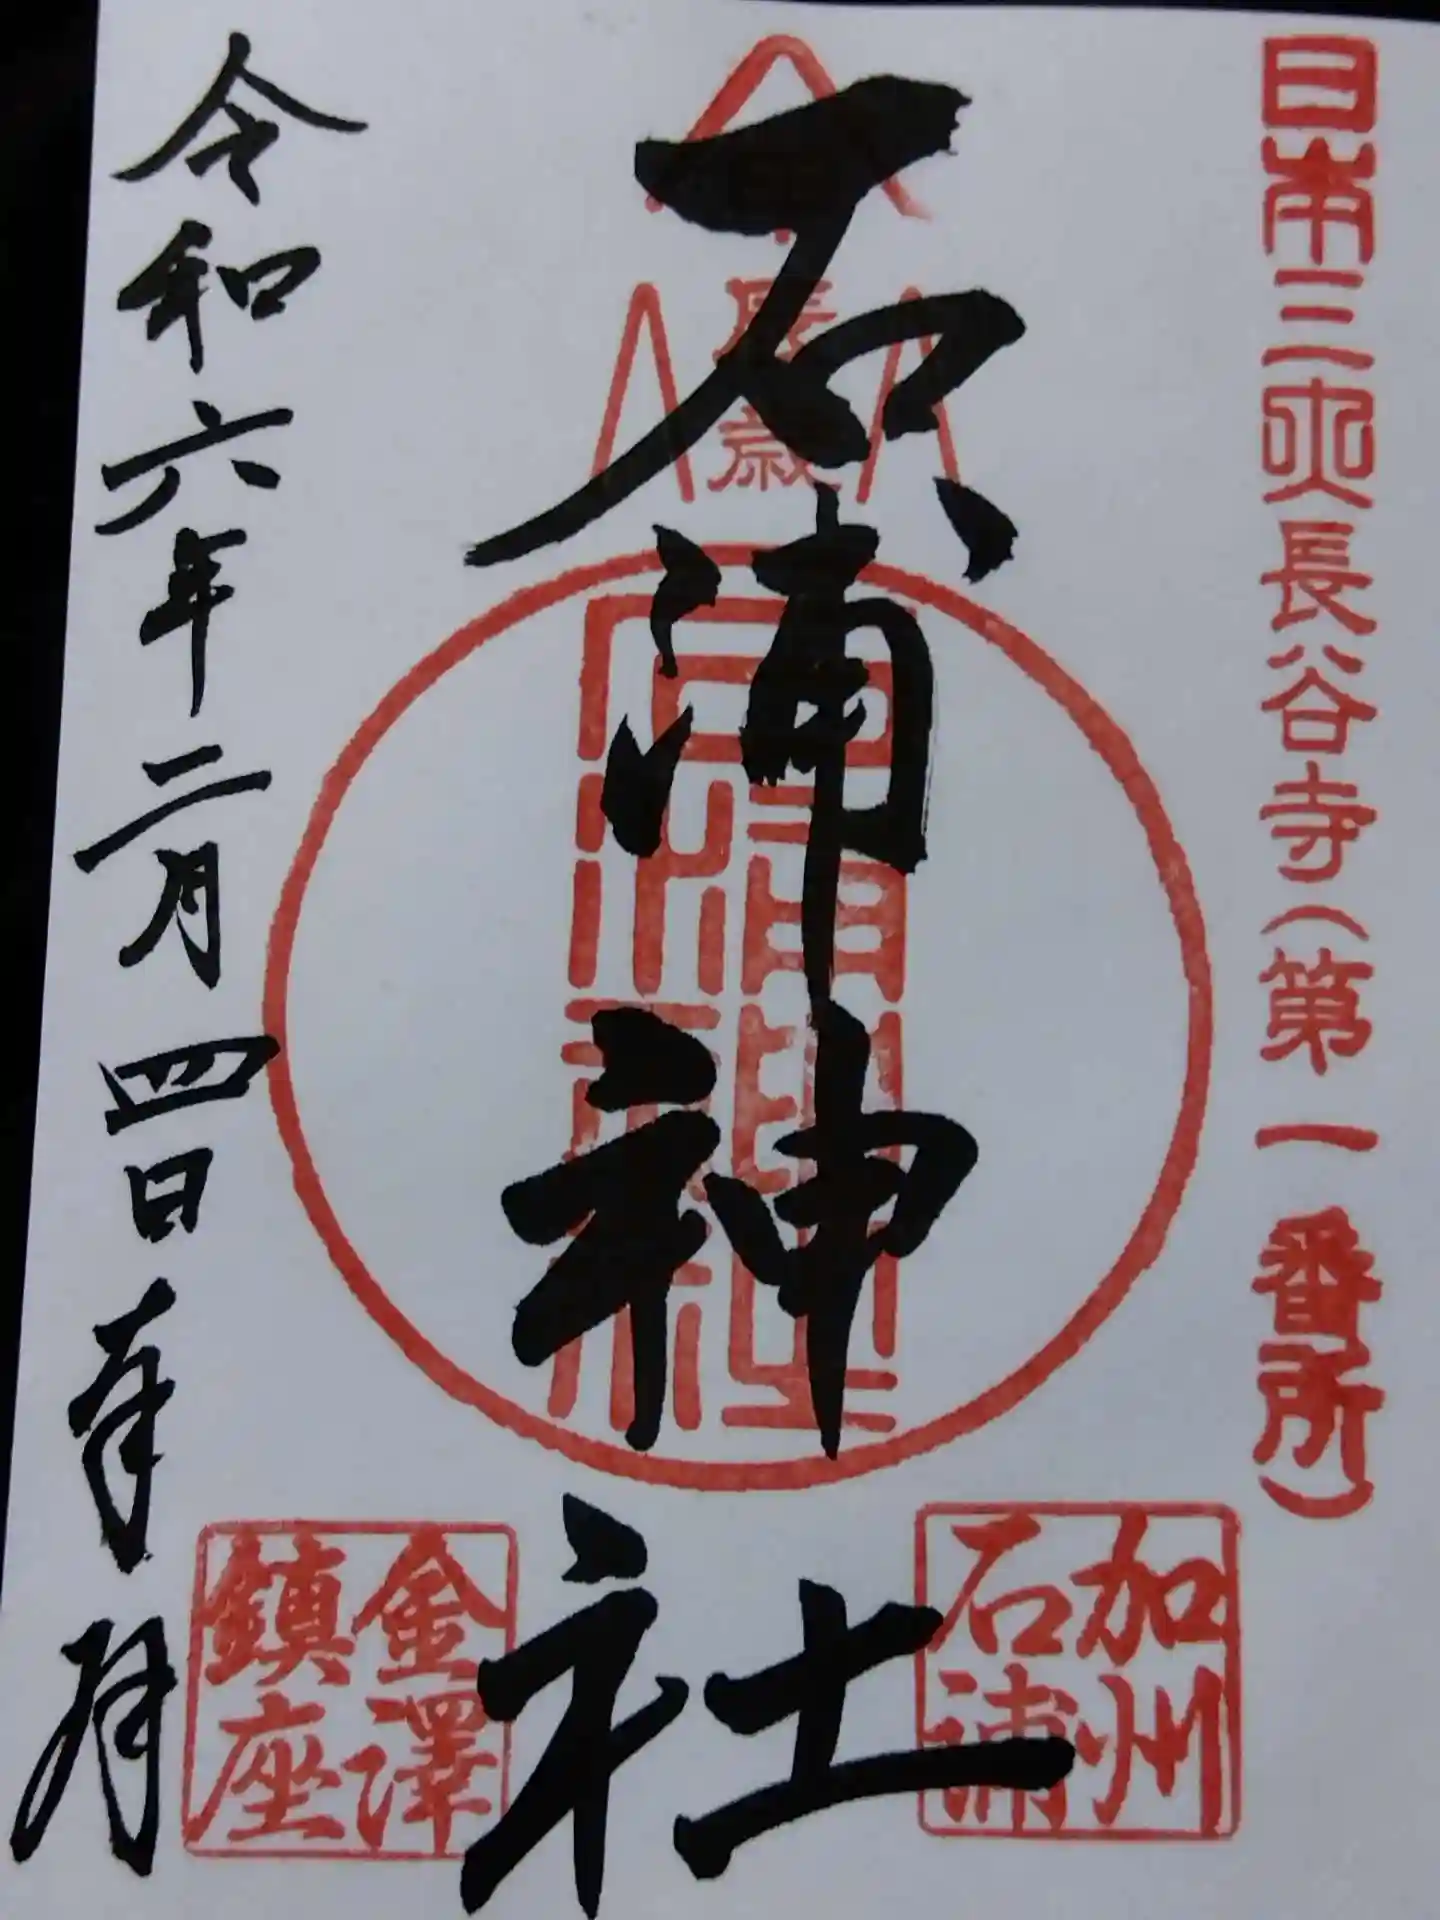 日本三大長谷寺(第一番所)
加州
石浦
長谷
石浦神社
石浦神社
金澤
鎮座
令和六年二月四日奉拝